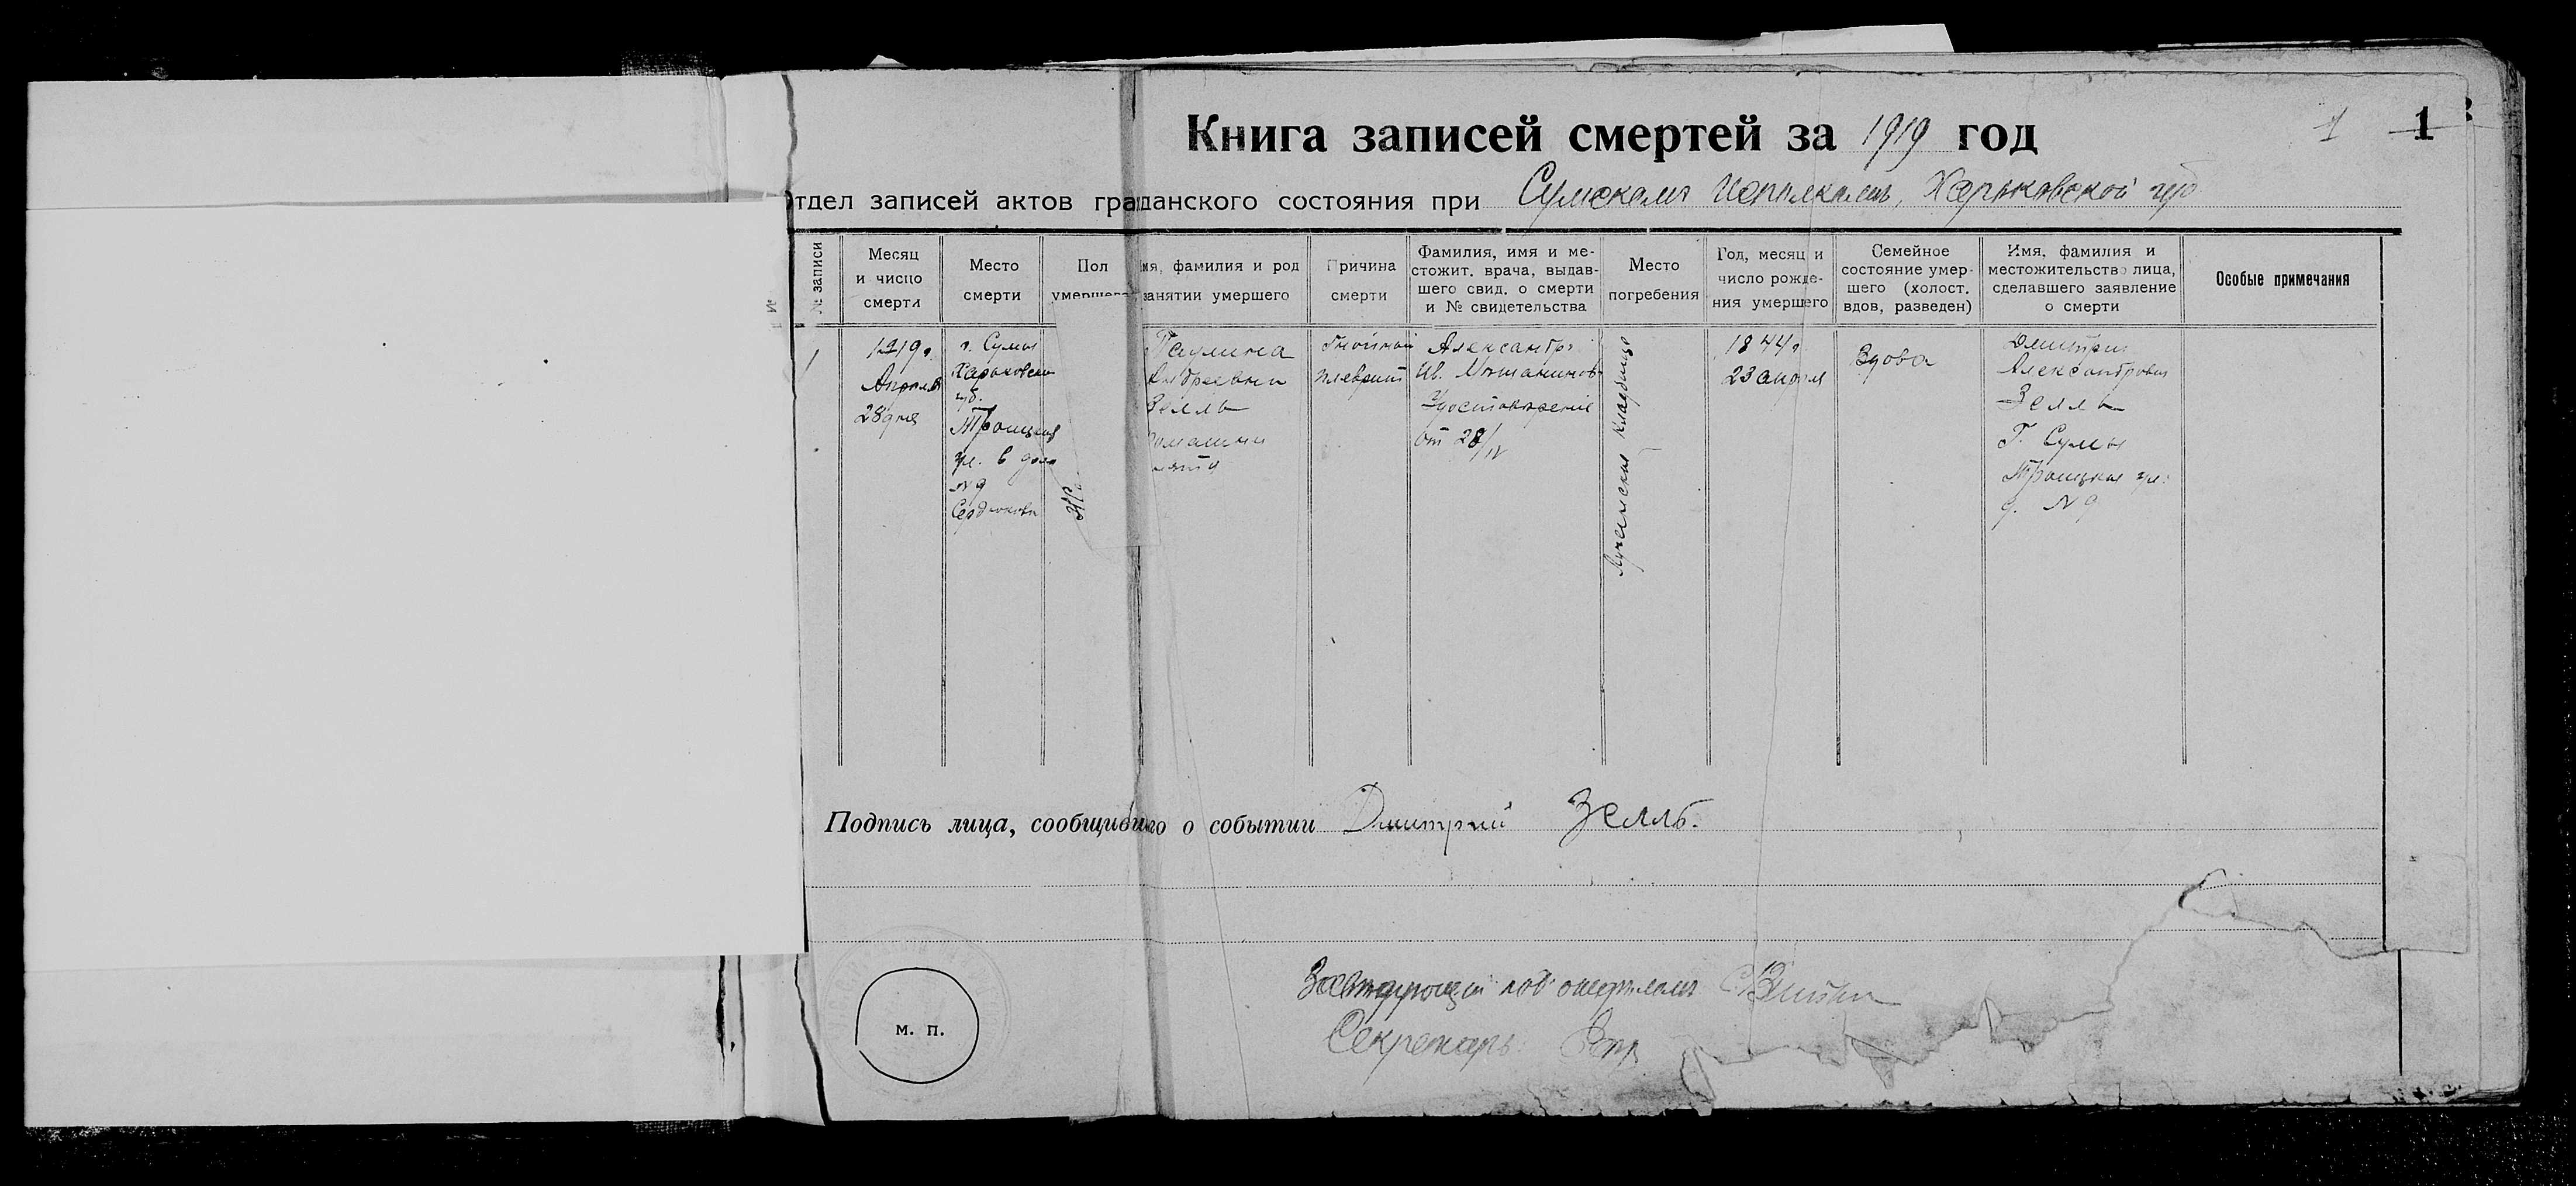 Книга записей смертей за 1919 год
1
1
тдел записей актов гражданского состояния при Сумском Исполкоме, Харьковской губ
№ записи
Месяц
и число
смерти
Место
смерти
Пол
умершего
мя, фамилия и род
занятии умершего
Причина
смерти
Фамилия, имя и ме-
стожит. врача, выдав-
шего свид. о смерти
и № свидетельства
Место
погребения
Год, месяц и
число рожде-
ния умершего
Семейное
состояние умер-
шего (холост,
вдов, разведен)
Имя, фамилия и
местожительство лица,
сделавшего заявление
о смерти
Особые примечания
1
1919 г.
Апреля
28 дня
г. Сумы
Харьковск
губ.
Троицкая
ул. в доме
№ 9
Сердюкова
Ж
Паулина
Андреевна
Зелль
гнойный
плеврит
Александр
Ив.
Удостоверение
от 28/IV
кладбище
1844 г
23 апреля
Вдова
Дмитрий
Александрович
Зелль
Г. Сумы
Троицкая ул.
д. № 9
Подпись лица, сообщившего о событии Дмитрий Зелль.
Заведующий под'отделом
Секретарь
м. п.